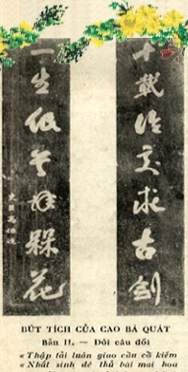 十載論交求古劍
一生低首拜槑花
BÚT TÍCH CỦA CAO BÁ QUÁT
Bản II. — Đôi câu đối
«Thập tải luân giao cầu cổ kiếm
«Nhất sinh đê thủ bái mai hoa